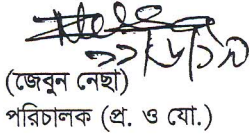 (জেবুন নেছা)
পরিচালক (প্র. ও যো.)